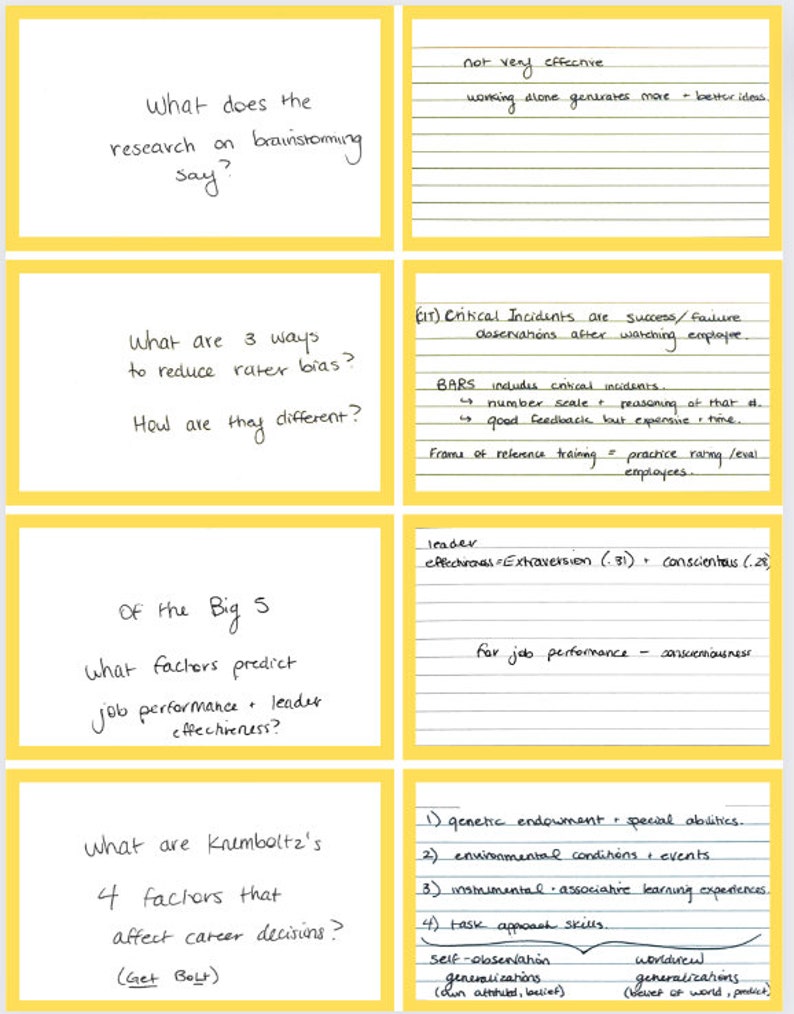 What does the
research on brainstorming
say?
not very effective
working alone generates more + better ideas
What are 3 ways
to reduce rater bias?
How are they different?
(CIT) Critical Incidents are success/failure
observations after watching employee.
BARS includes critical incidents.
↳ number scale + reasoning of that #.
↳ good feedback but expensive + time.
Frame of reference training = practice rating/eval
employees.
Of the Big 5
what factors predict
job performance + leader
effectiveness?
leader
effectiveness = Extraversion (.31) + conscientious (.28)
for job performance - conscienciousness
What are Krumboltz's
4 factors that
affect career decisions?
(Get Bolt)
1) genetic endowment + special abilities.
2) environmental conditions + events
3) instrumental + associative learning experiences.
4) task approach skills.
self-observation
generalizations
(own attitude, belief)
worldview
generalizations
(belief of world, predict)